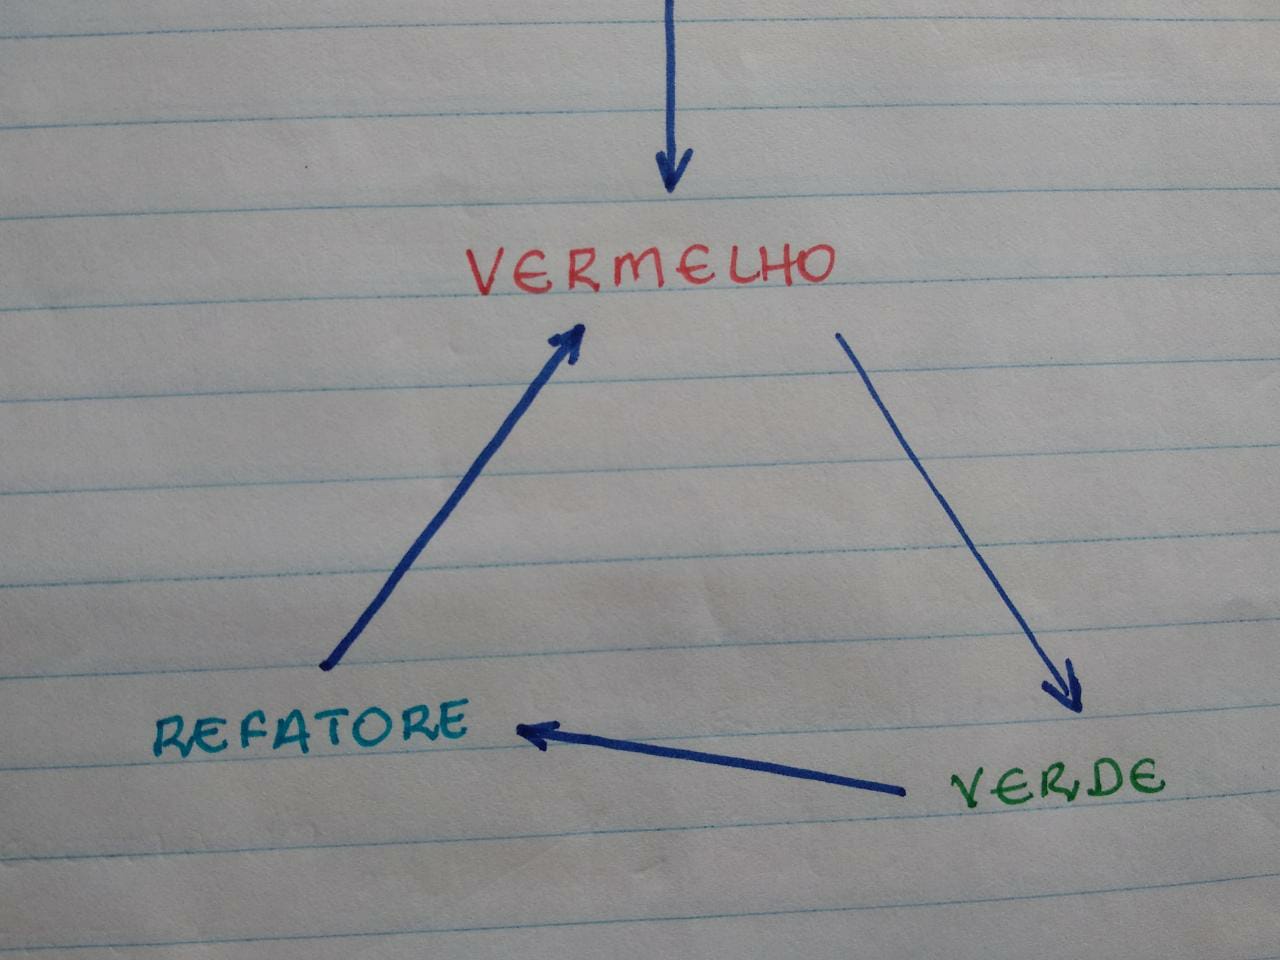 VERMELHO
REFATORE
VERDE